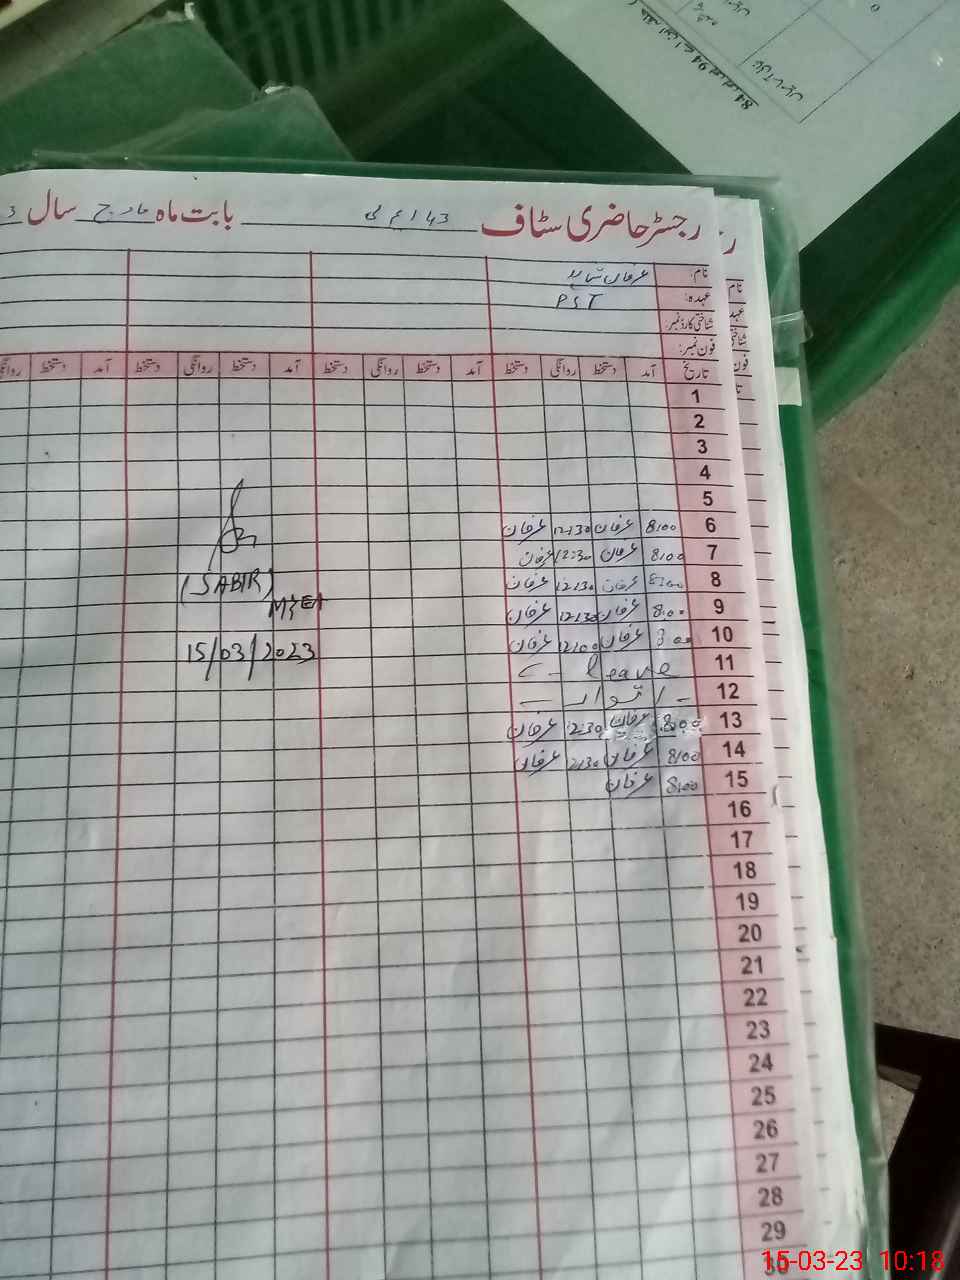 رجسٹر حاضری سٹاف بابت ماہ مارچ سال
نام:
عہدہ: PST
شناختی کارڈ نمبر:
فون نمبر:
تاریخ آمد دستخط روانگی دستخط آمد دستخط روانگی دستخط آمد دستخط روانگی دستخط آمد دستخط روانگی
1
2
3
4
5
6 8:00 عرفان 12:30 عرفان
7 8:00 عرفان 12:30 عرفان
8 8:00 عرفان 12:30 عرفان
9 8:00 عرفان 12:30 عرفان
10 8:00 عرفان 12:00 عرفان
11 C - leave
12 - اتوار -
13 8:00 عرفان 12:30 عرفان
14 8:00 عرفان 12:30 عرفان
15 8:00 عرفان
16
17
18
19
20
21
22
23
24
25
26
27
28
29
30
(SABIR)
MEA
15/03/2023
15-03-23 10:18